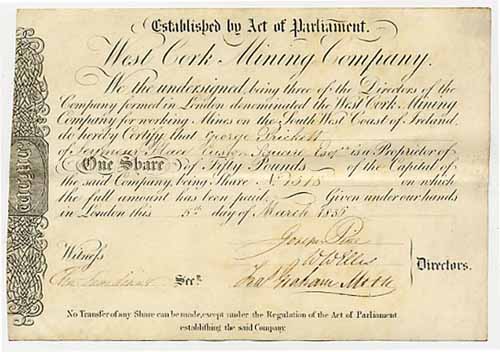 Established by Act of Parliament.
West Cork Mining Company.
We the undersigned, being three of the Directors of the
Company formed in London denominated the West Cork Mining
Company for working Mines on the South West Coast of Ireland,
do hereby Certify that George
of Seymour Place Euston Square Esqre. is a Proprietor of
One Share of Fifty Pounds of the Capital of
the said Company, being Share No. 1818 on which
the full amount has been paid. Given under our hands
in London this 5th day of March 1835
Witness
Secy.
W W Ellis
Directors.
No Transfer of any Share can be made, except under the Regulation of the Act of Parliament
establishing the said Company.